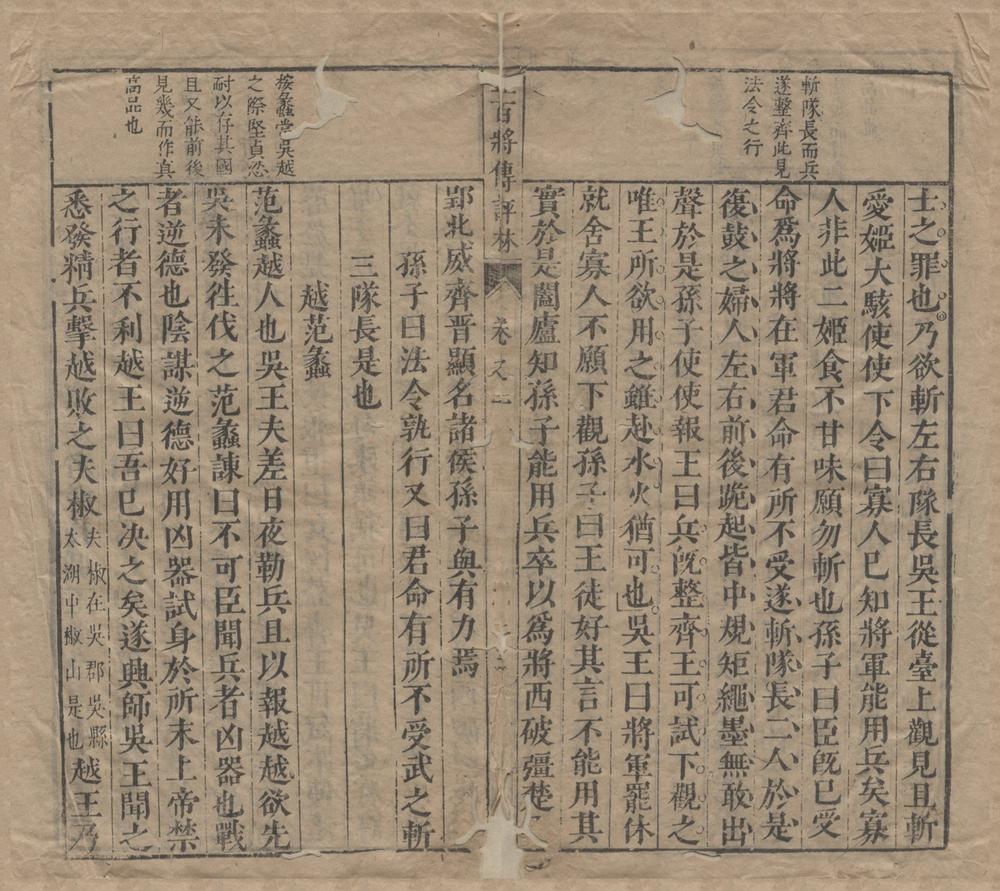 斬隊長而兵
遂整齊此見
法令之行
士之罪也乃欲斬左右隊長吳王從臺上觀見且斬
愛姬大駭使使下令曰寡人巳知將軍能用兵矣寡
人非此二姬食不甘味願勿斬也孫子曰臣旣巳受
命爲將將在軍君命有所不受遂斬隊長二人於是
復鼓之婦人左右前後跪起皆中規矩繩墨無敢出
聲於是孫子使使報王曰兵旣整齊王可試下觀之
唯王所欲用之雖赴水火猶可也吳王曰將軍罷休
就舍寡人不願下觀孫子曰王徒好其言不能用其
實於是闔廬知孫子能用兵卒以爲將西破彊楚
百將傳評林
卷之二
郢北威齊晉顯名諸侯孫子與有力焉
孫子曰法令孰行又曰君命有所不受武之斬
三隊長是也
越范蠡
按蠡當吳越
之際堅貞忍
耐以存其國
且又能前後
見幾而作真
高品也
范蠡越人也吳王夫差日夜勒兵且以報越越欲先
吳未發徃伐之范蠡諫曰不可臣聞兵者凶器也戰
者逆德也陰謀逆德好用凶器試身於所末上帝禁
之行者不利越王曰吾巳决之矣遂興師吳王聞之
悉發精兵擊越敗之夫椒夫椒在吳郡吳縣太湖中椒山是也越王乃